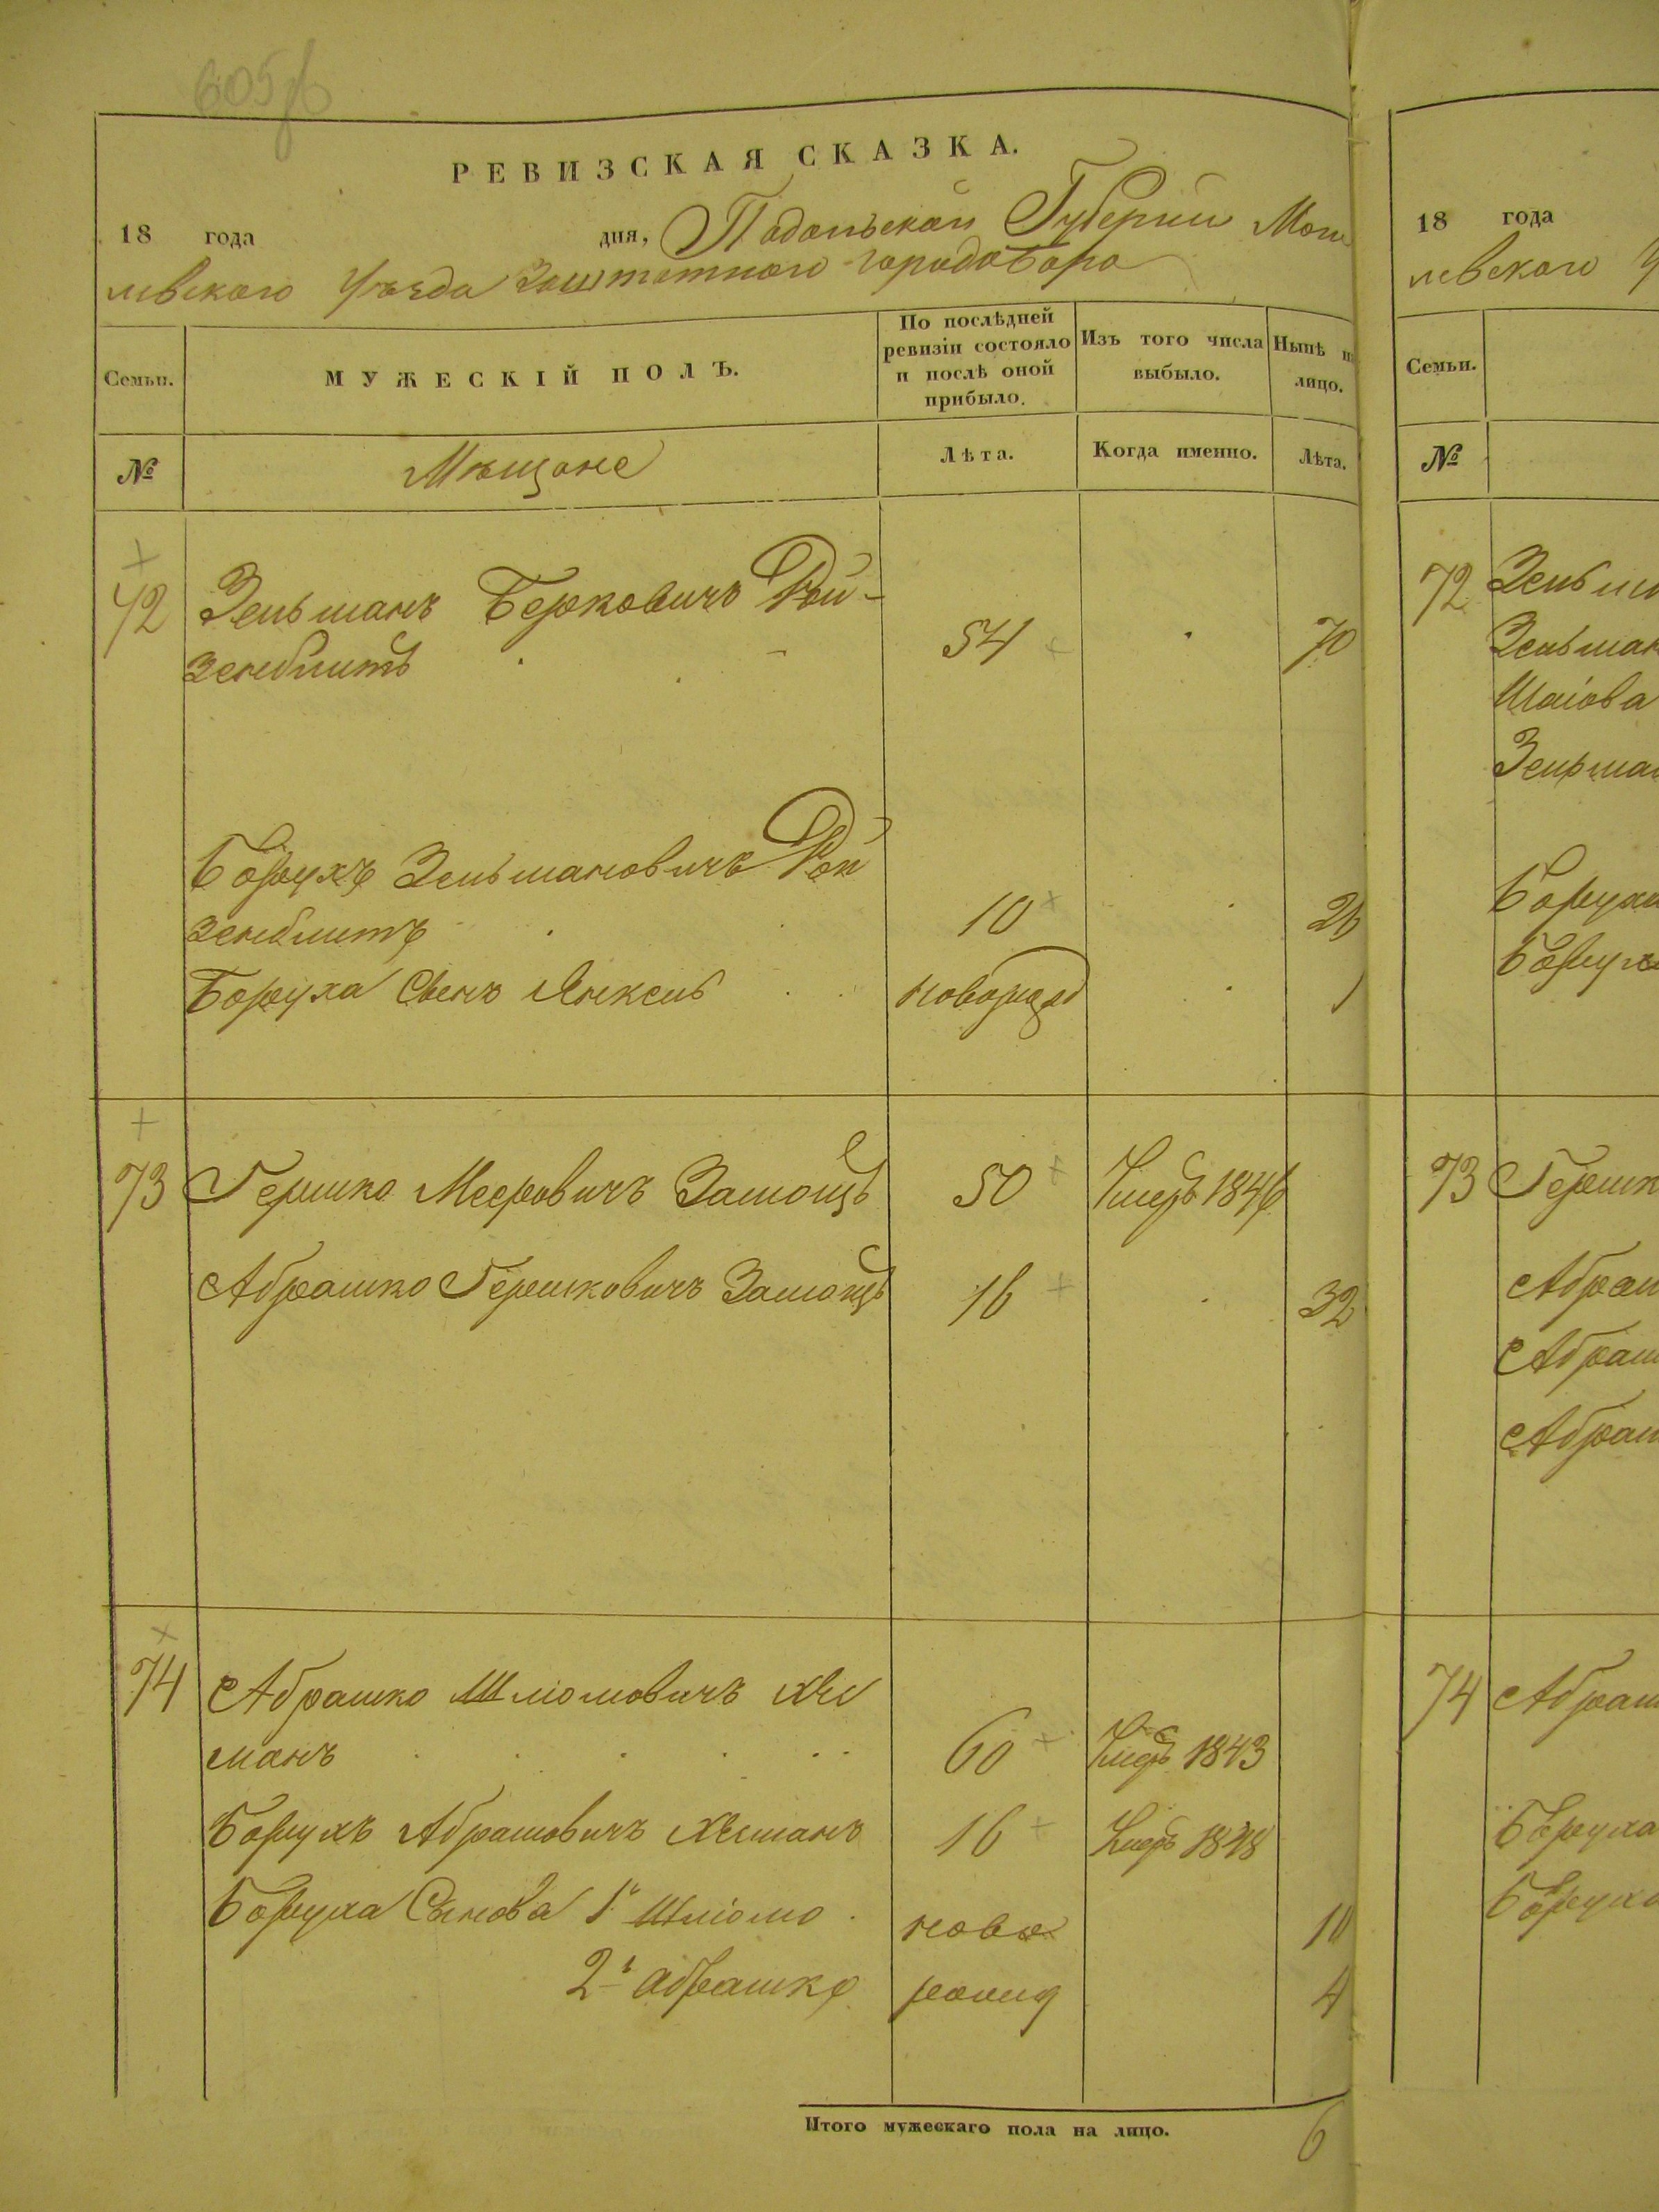 605 об
РЕВИЗСКАЯ СКАЗКА.
18 года дня, Подольской Губернии Моги
левского Уѣзда Заштатного города Бара
Семьи.
МУЖЕСКІЙ ПОЛЪ.
По послѣдней ревизіи состояло и послѣ оной прибыло.
Изъ того числа выбыло.
Нынѣ на лицо.
№
Мѣщане
Лѣта.
Когда именно.
Лѣта.
72 Зельманъ Берковичъ Рой-
зенблитъ 54 70
Борухъ Зельмановичъ Рой
зенблитъ 10 26
Боруха Сынъ Янкель новорожд 1
73 Гершко Мееровичъ Замощъ 50 Умеръ 1846
Абрашко Гершковичъ Замощъ 16 32
74 Абрашко Шліомовичъ
манъ 60 Умеръ 1843
Борухъ Абрамовичъ 16 Умеръ 1848
Боруха Сынова 1й Шліомо ново 10
2й Абрашко рожд 4
Итого мужескаго пола на лицо. 6
18 года
левского У
Семьи.
№
72 Зельма
Зельман
Шаіова
Зельман
Боруха
Борух
73 Гершк
Абраш
Абраш
Абраш
74 Абраш
Боруха
Боруха